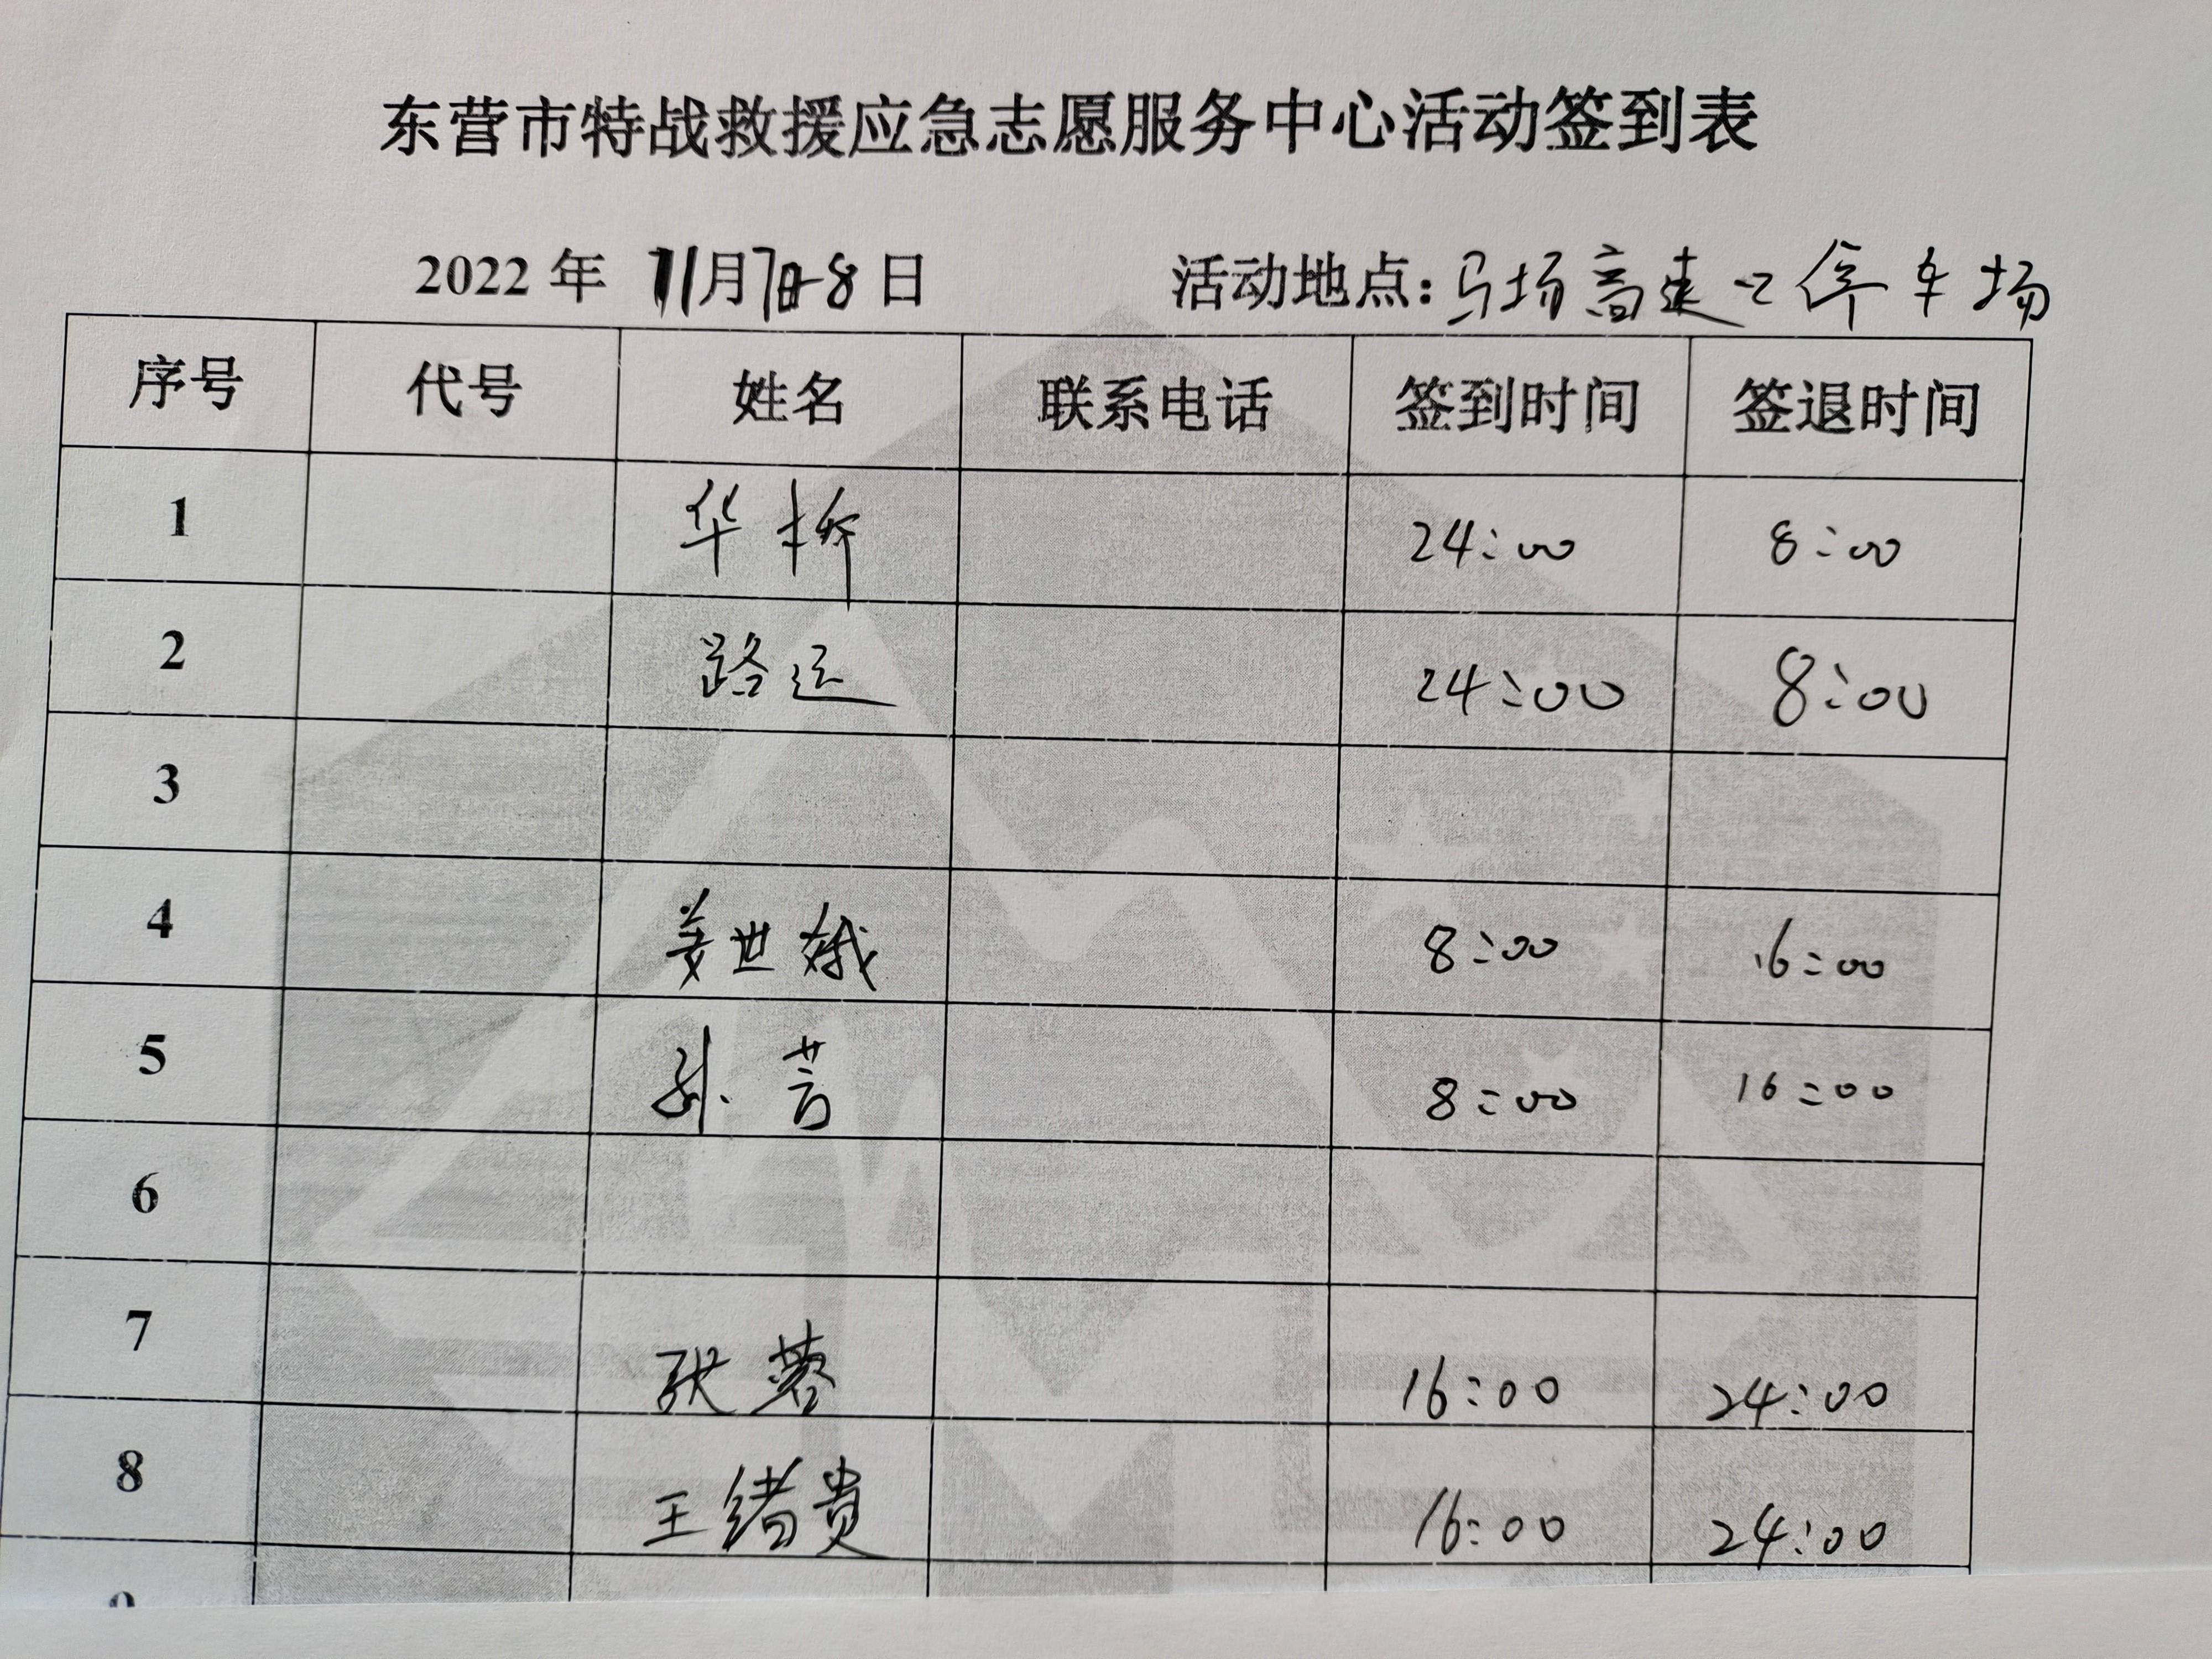 东营市特战救援应急志愿服务中心活动签到表
2022 年 11月7日-8日 活动地点:马场高速口停车场
序号 代号 姓名 联系电话 签到时间 签退时间
1 华桥 24:00 8:00
2 路遥 24:00 8:00
3
4 姜世娥 8:00 16:00
5 孙芸 8:00 16:00
6
7 张蓉 16:00 24:00
8 王绪贵 16:00 24:00